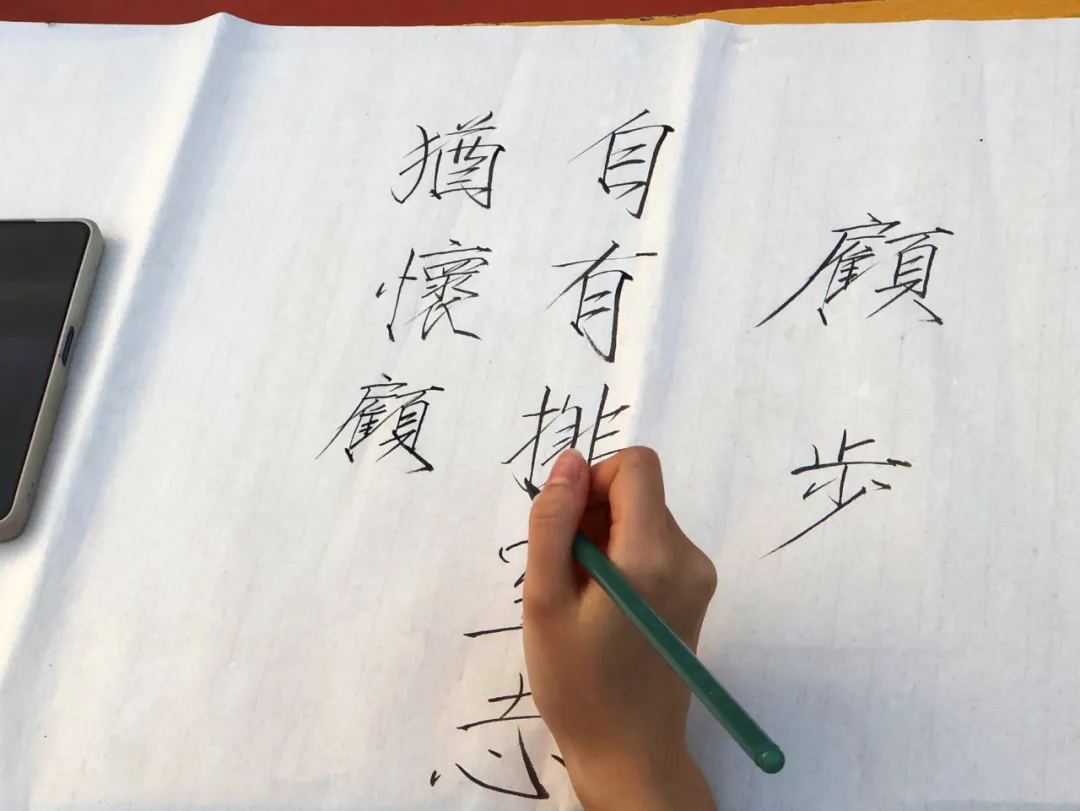 顧步
自有排空志
猶懷顧